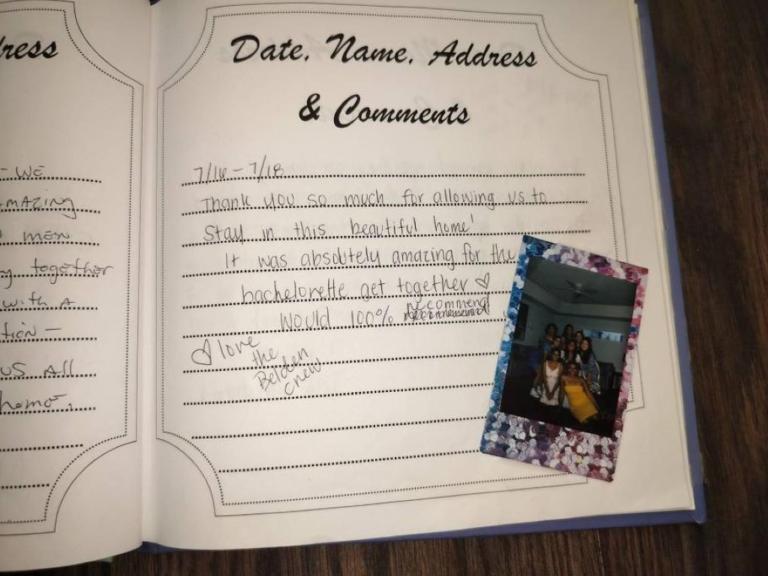 ress
- WE
MAZING
MEN
together
with A
tion -
US All
home.
Date, Name, Address
& Comments
7/16 - 7/18
Thank you so much for allowing us to
stay in this beautiful home!
It was absolutely amazing for the
bachelorette get together ♡
Would 100% recommend
♡ love
the
Belden
crew